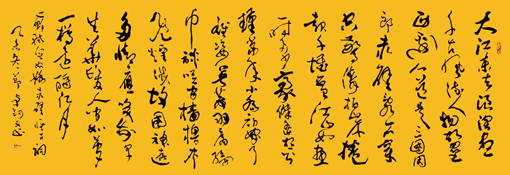 大江東去浪淘盡
千古風流人物故壘
西邊人道是三國周
郎赤壁亂石穿
空驚濤拍岸捲
起千堆雪江山如畫
一時多少豪傑遙想公
瑾當年小喬初嫁了
雄姿英發羽扇綸
巾談笑間檣櫓灰
飛煙滅故國神遊
多情應笑我早
生華髮人生如夢
一樽還酹江月
蘇軾念奴嬌赤壁懷古詞